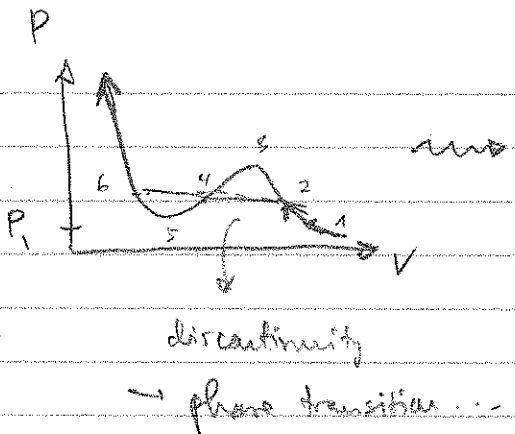 P
3
6
4
2
P₁
5
1
V
discontinuity
→ phase transition ...